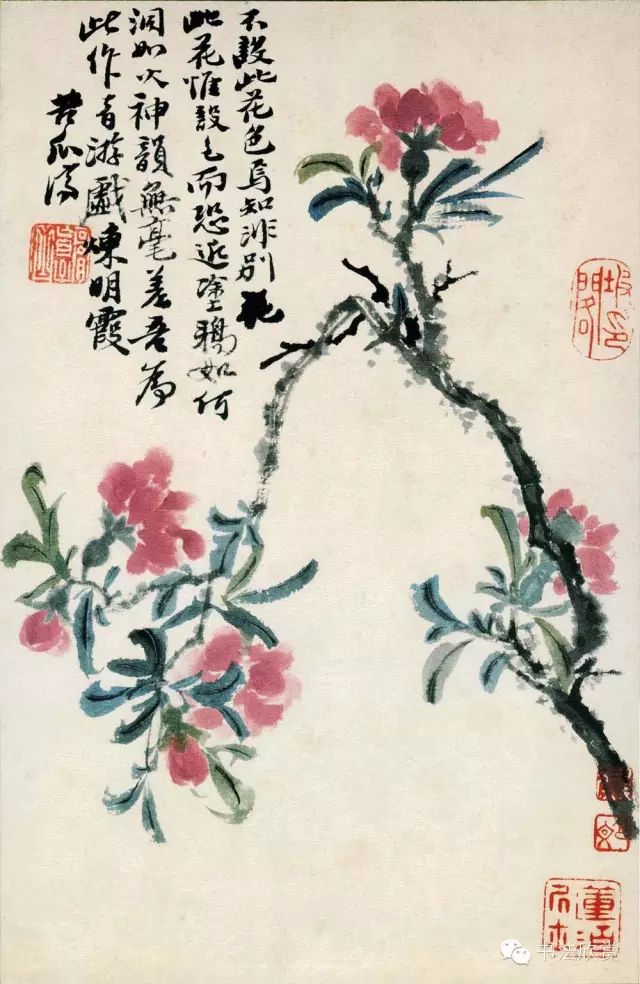 不設此花色焉知非別花
此花惟設色而恐近塗鴉如何
洞如火神韻無毫差吾為
此作者游戲煉明霞
苦瓜濟
书法欣赏